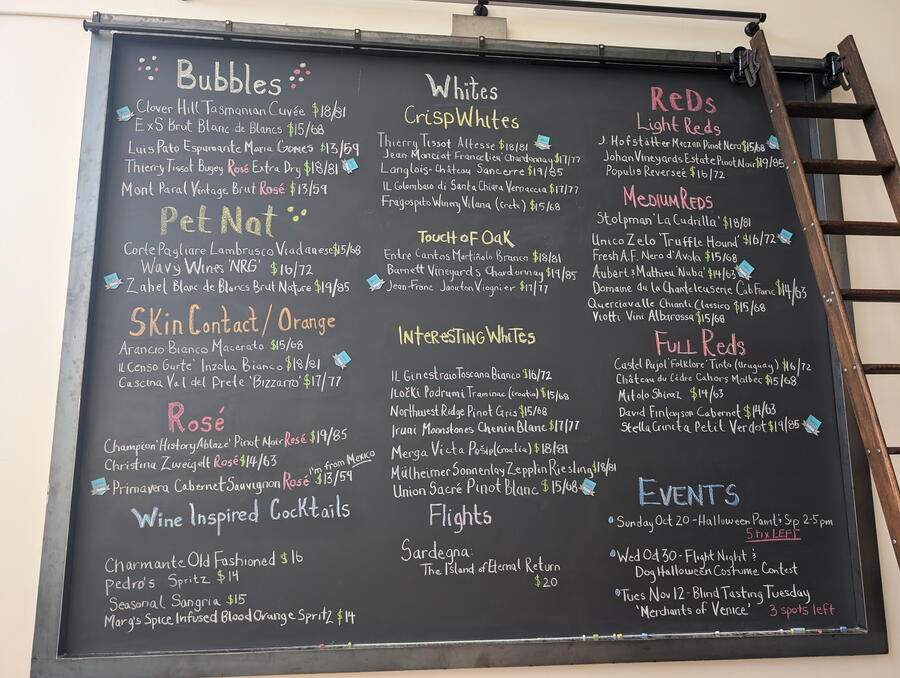 Bubbles
Clover Hill Tasmanian Cuvée $18/81
ExS Brut Blanc de Blancs $15/68
Luis Pato Espumante Maria Gomes $13/59
Thierry Tissot Bugey Rosé Extra Dry $18/81
Mont Paral Vintage Brut Rosé $13/59
Pet Nat
Corte Pagliare Lambrusco Viadanese $15/68
Wavy Wines 'NRG' $16/72
Zahel Blanc de Blancs Brut Nature $19/85
Skin Contact / Orange
Arancio Bianco Macerato $15/68
Il Censo Gurte' Inzolia Bianco $18/81
Cascina Val del Prete 'Bizzarro' $17/77
Rosé
Champion 'History Ablaze' Pinot Noir Rosé $19/85
Christina Zweigelt Rosé $14/63
I'm from Mexico
Primavera Cabernet Sauvignon Rosé $13/59
Wine Inspired Cocktails
Charmante Old Fashioned $16
Pedro's Spritz $14
Seasonal Sangria $15
Marg's Spice Infused Blood Orange Spritz $14
Whites
Crisp Whites
Thierry Tissot Altesse $18/81
Jean Monciat Chardonnay $17/77
Langlois-Château Sancerre $19/85
IL Colombaio di Santa Chiara Vernaccia $17/77
Fragospito Winery Vilana (crete) $15/68
Touch of Oak
Entre Cantos Martiño Branco $18/81
Barnett Vineyards Chardonnay $19/85
Jean-Franc Jacouton Viognier $17/77
Interesting Whites
IL Ginestraio Toscana Bianco $16/72
Iločki Podrumi Traminac (croatia) $15/68
Northwest Ridge Pinot Gris $15/68
Iruai Moonstones Chenin Blanc $17/77
Merga Victa Pošip (Croatia) $18/81
Mülheimer Sonnenlay Zepplin Riesling $18/81
Union Sacré Pinot Blanc $15/68
Flights
Sardegna:
The Island of Eternal Return
$20
Reds
Light Reds
J. Hofstätter Meczan Pinot Nero $15/68
Johan Vineyards Estate Pinot Noir $19/85
Populis Reversée $16/72
Medium Reds
Stolpman 'La Cuadrilla' $18/81
Unico Zelo 'Truffle Hound' $16/72
Fresh A.F. Nero d'Avola $15/68
Aubert & Mathieu 'Nuba' $14/63
Domaine du la Chanteleuserie Cab Franc $14/63
Querciavalle Chianti Classico $15/68
Viotti Vini Albarossa $15/68
Full Reds
Castel Pujol 'Folklore' Tinto (Uruguay) $16/72
Château du Cèdre Cahors Malbec $15/68
Mitolo Shiraz $14/63
David Finlayson Cabernet $14/63
Stella Crinita Petit Verdot $19/85
Events
Sunday Oct 20 - Halloween Paint & Sip 2-5pm
5 tix LEFT
Wed Oct 30 - Flight Night &
Dog Halloween Costume Contest
Tues Nov 12 - Blind Tasting Tuesday
'Merchants of Venice' 3 spots left